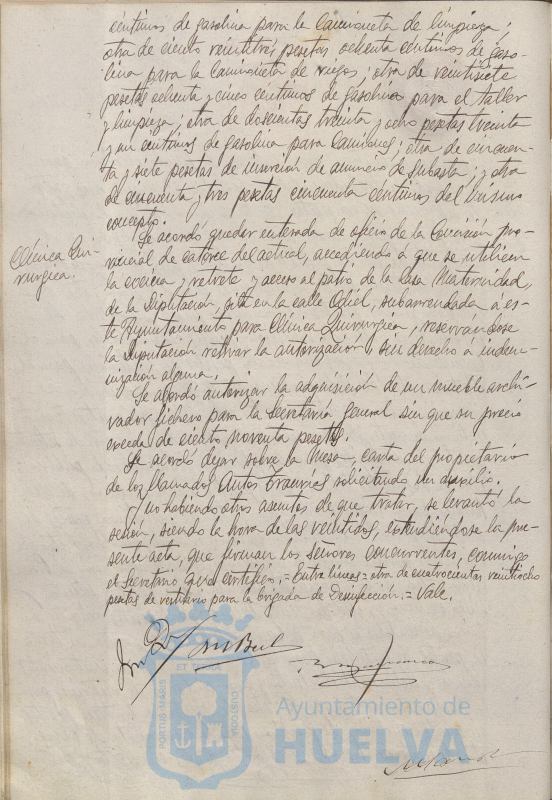 céntimos de gasolina para la Camioneta de limpieza;
otra de ciento veintitrés pesetas ochenta céntimos de gaso-
lina para la Camioneta de riegos; otra de veintisiete
pesetas ochenta y cinco céntimos de gasolina para el taller
y limpieza; otra de doscientas treinta y ocho pesetas treinta
y un céntimos de gasolina para Camiones; otra de cincuen-
ta y siete pesetas de inserción de anuncio de subasta; y otra
de cincuenta y tres pesetas cincuenta céntimos del mismo
concepto.
Clínica Qui-
rurgica.
Se acordó quedar enterada de oficio de la Comisión pro-
vincial de catorce del actual, accediendo a que se utilicen
la cocina y retrete y acceso al patio de la Casa Maternidad,
de la Diputación, sita en la calle Odiel, subarrendada a es-
te Ayuntamiento para Clínica Quirurgica, reservandose
la Diputación retirar la autorización, sin derecho á indem-
nización alguna.
Se acordó autorizar la adquisición de un mueble archi-
vador fichero para la Secretaría general sin que su precio
exceda de ciento noventa pesetas.
Se acordó dejar sobre la mesa, carta del propietario
de los llamados Autos Tranvías solicitando un auxilio.
Y no habiendo otros asuntos de que tratar, se levantó la
sesión, siendo la hora de las veintidos, extendiéndose la pre-
sente acta, que firman los señores concurrentes, conmigo
el Secretario que certifico.=Entre líneas=otra de cuatrocientas veintiocho
pesetas de vestuario para la brigada de Desinfección.=Vale.
PORTUS MARIS
ET TERRÆ
CUSTODIA
Ayuntamiento de
HUELVA